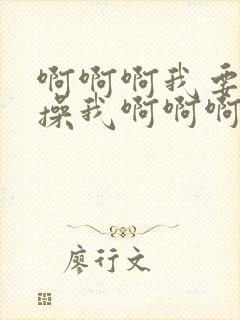 啊啊啊我要
操我啊啊啊
廖行文